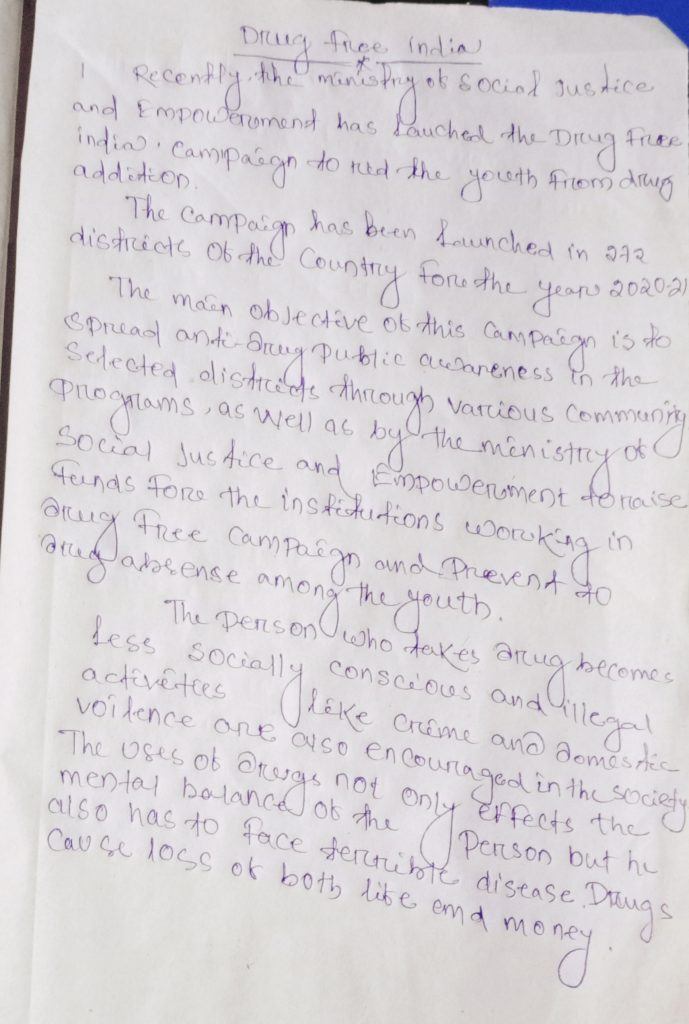 Drug free india
1 Recently, the ministry of social Justice
and Empowerment has Lauched the Drug Free
india, campaign to rid the youth from drug
addition.
The campaign has been Launched in 272
districts of the Country for the year 2020-21
The main objective of this campaign is to
spread anti-drug public awareness in the
Selected districts through various Community
programs, as well as by the ministry of
Social Justice and Empowerment to raise
funds for the institutions working in
drug free campaign and Prevent to
drug absense among the youth.
The person who takes drug becomes
Less socially conscious and illegal
activities like crime and domestic
voilence are also encouraged in the society
The uses of drugs not only effects the
mental balance of the person but he
also has to face terrible disease. Drugs
Cause loss of both life emd money.